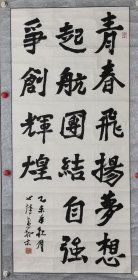 青春飛揚夢想
起航團結自强
爭創輝煌
乙未年秋月